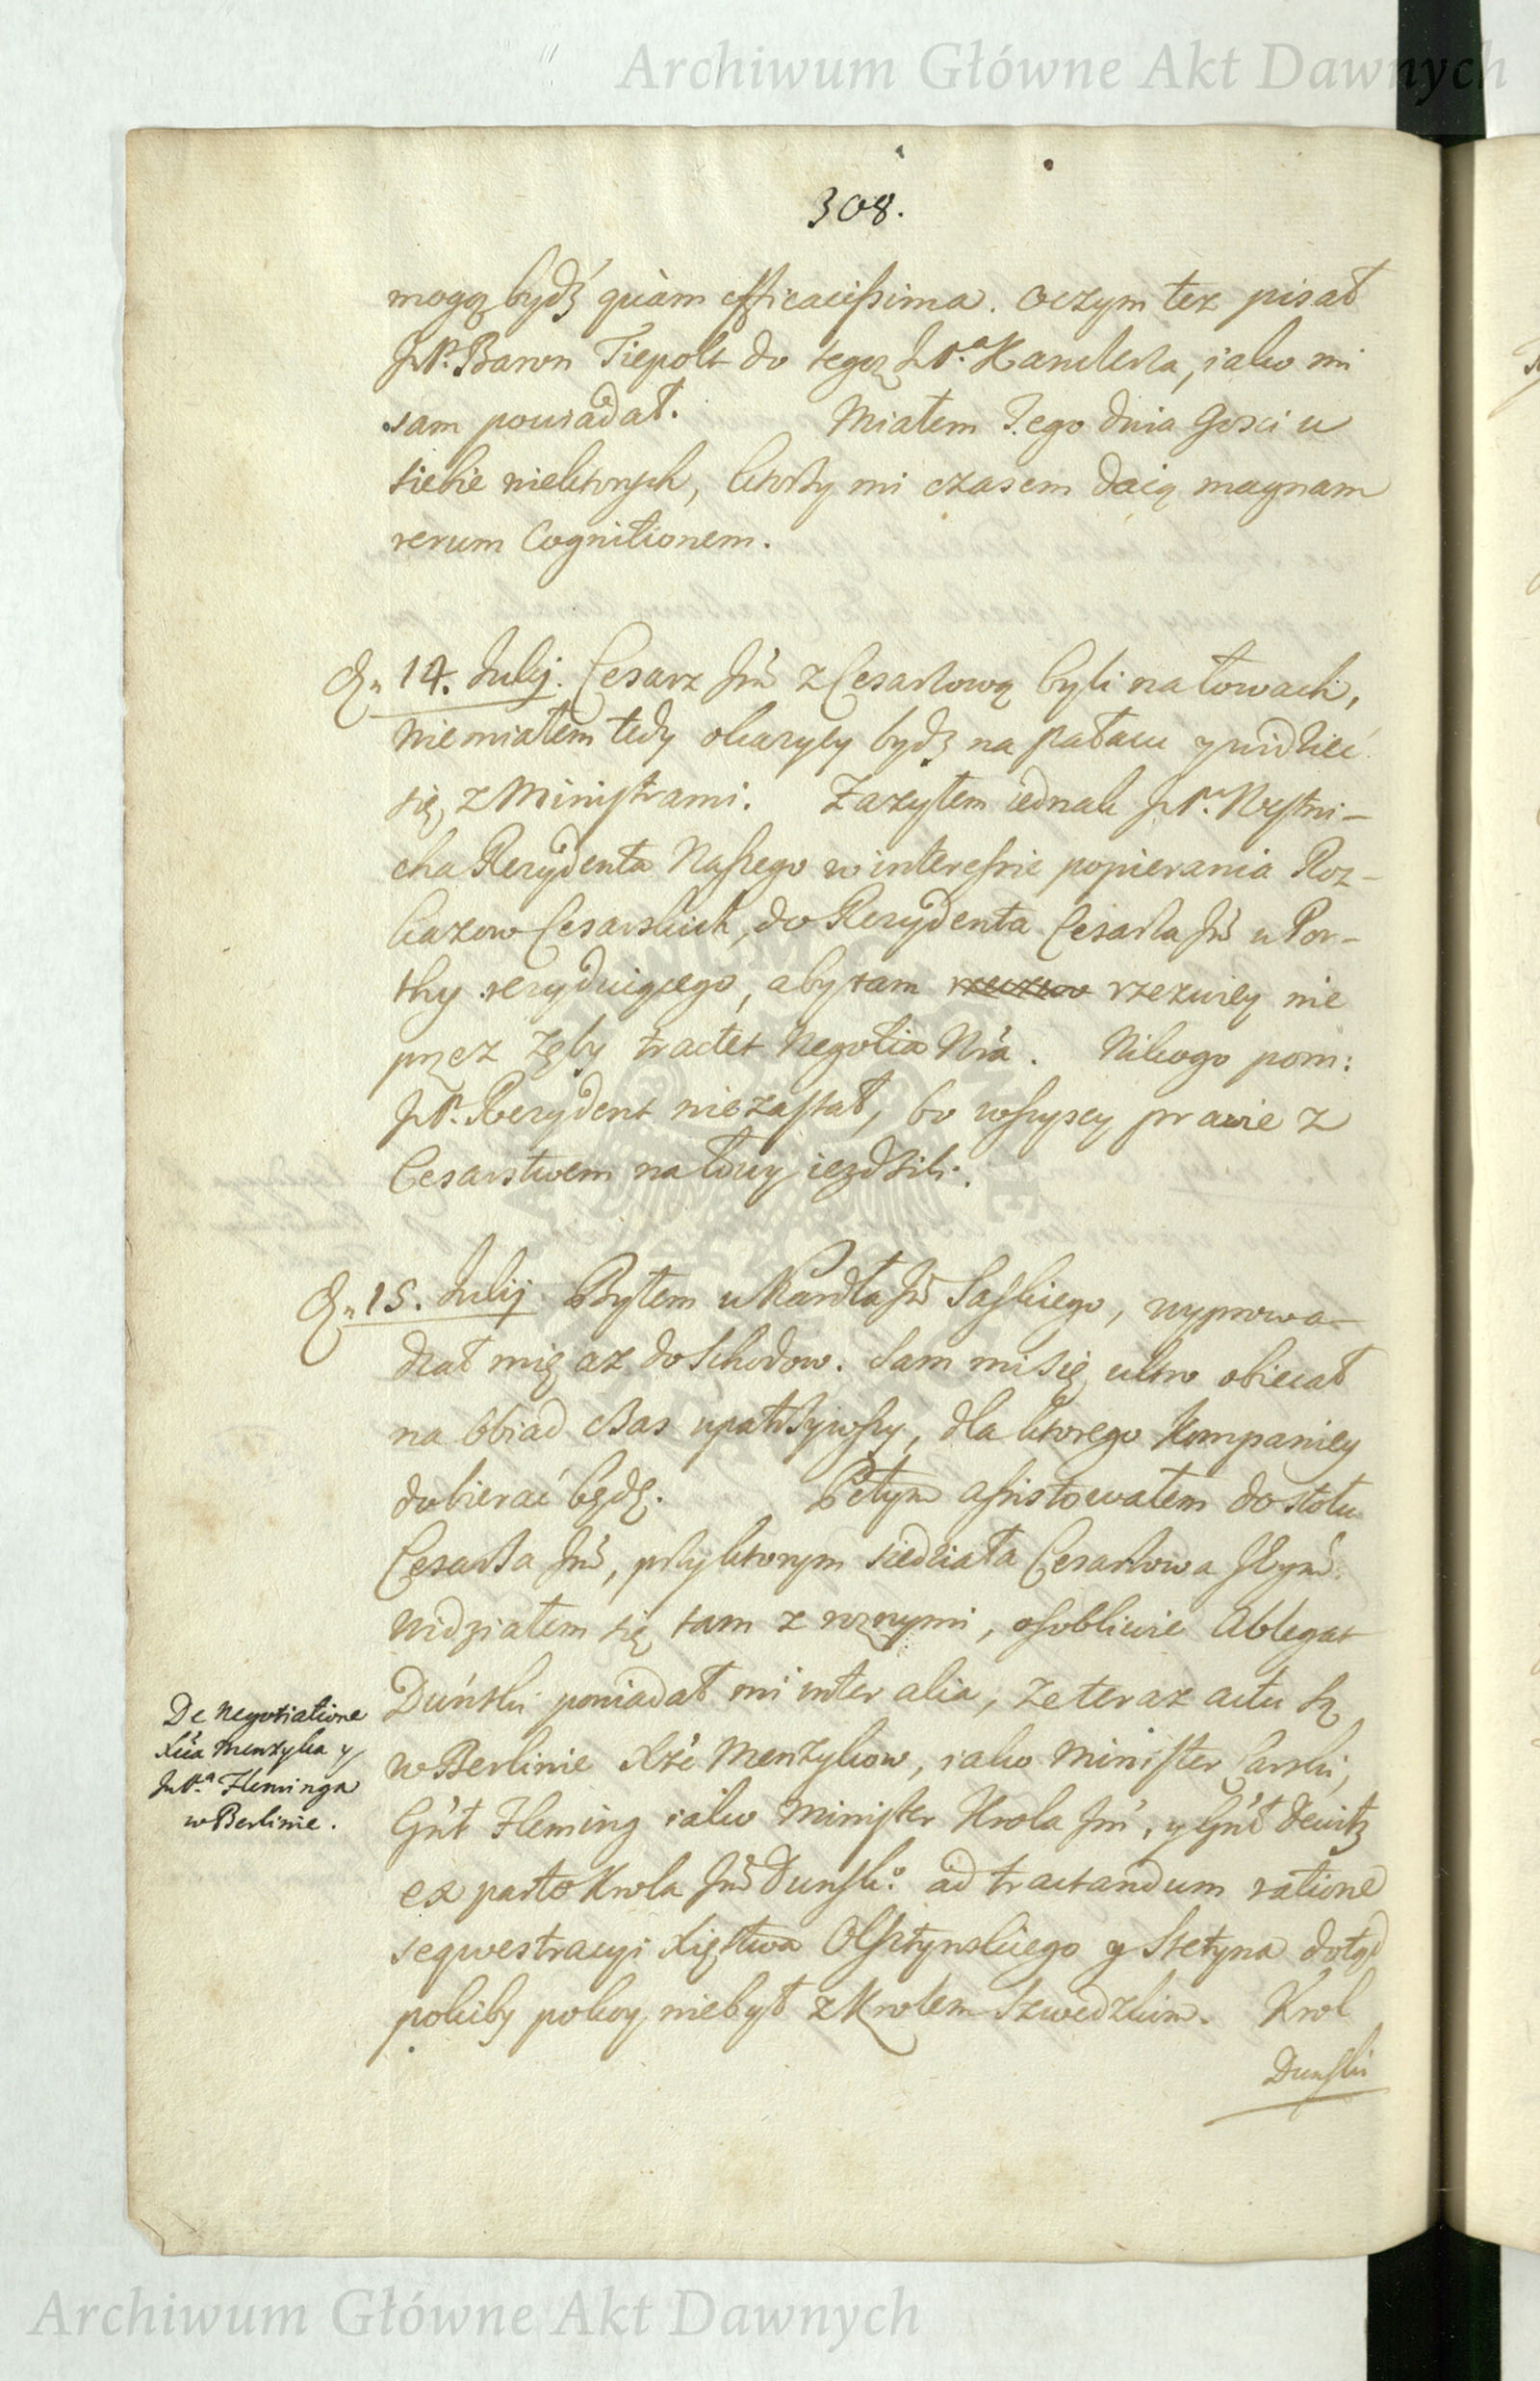 Archiwum Główne Akt Dawnych
308.
mogą bydź quàm efficacissima. Oczym tez pisał
JP. Baron Tiepolt do tegoz JP.ª Kanclerza, iako mi
sam powiadał. Miałem Tego dnia Gosci u
siebie niektorych, ktorzy mi czasem daią magnam
rerum Cognitionem.
D. 14. Julij. Cesarz Jm̃ z Cesarzową byli na łowach,
nie miałem tedy okazyey bydz na pałacu y widzieć
się z Ministrami. Zazyłem iednak JP.
cha Rezydenta Naszego w interessie popierania Roz-
kazow Cesarskich, do Rezydenta Cesarza Jm̃ u Por-
thy rezyduiącego, aby tam rzezwiey nie
przez zęby tractet Negotia Nr̃a. Nikogo pom:
JP. Rezydent nie zastał, bo wszyscy prawie z
Cesarstwem na łowy iezdzili.
D. 15. Julij Byłem u Kardła Jm̃ Saskiego, wyprowa-
dzał mię az do Schodow. Sam mi się ultro obiecał
na Obiad Czas upatrzywszy, dla ktorego Kompaniey
dobierać będę. Potym assistowałem do stołu
Cesarza Jm̃, przy ktorym siedziała Cesarzowa Jeym̃.
Widziałem się tam z roznymi, osobliwie Ablegat
Duński powiadał mi inter alia, ze teraz actu są
w Berlinie Xże Menzykow, iako Minister Carski,
Gñł Fleming iako Minister Krola Jm̃, y Gñł Dewitz
ex parte Krola Jm̃ Dunsk:º ad tractandum ratione
seqwestracyi Xięstwa Olsztynskiego y Sztetyna dotąd
pokiby pokoy niebył z Krolem Szwedzkim. Krol
Dunski
De negotiatione
Xcia Menzyka y
JP.ª Fleminga
w Berlinie.
Archiwum Główne Akt Dawnych